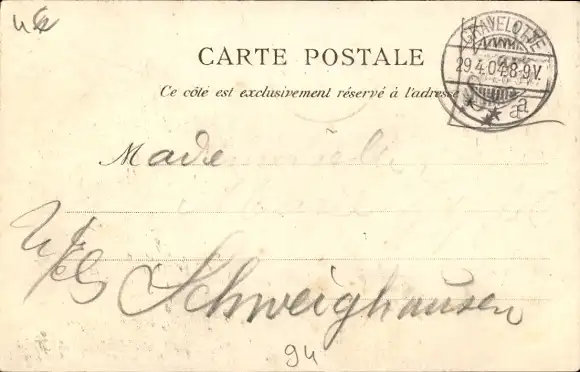 GRAVELOTTE
29.4.04.8-9V.
a
CARTE POSTALE
Ce côté est exclusivement réservé à l'adresse
Made
Schweighausen
94